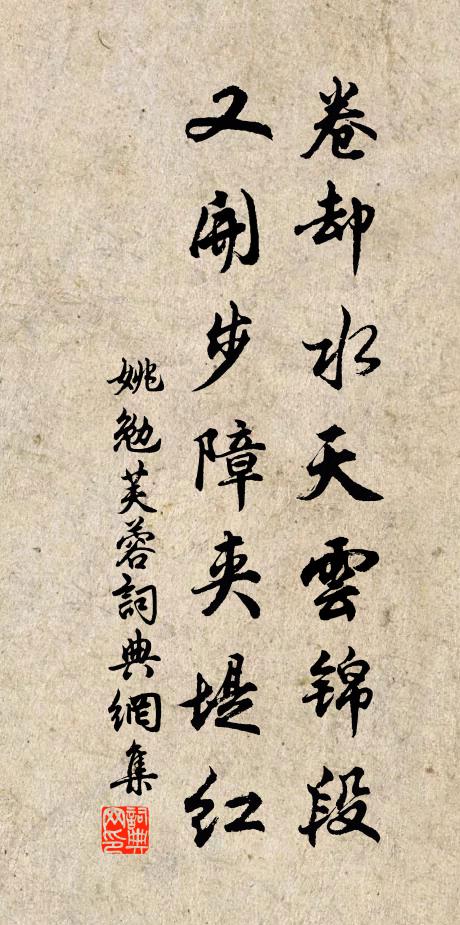 卷却水天雲锦段
又開步障夹堤红
姚勉芙蓉詞典網集
詞典网印